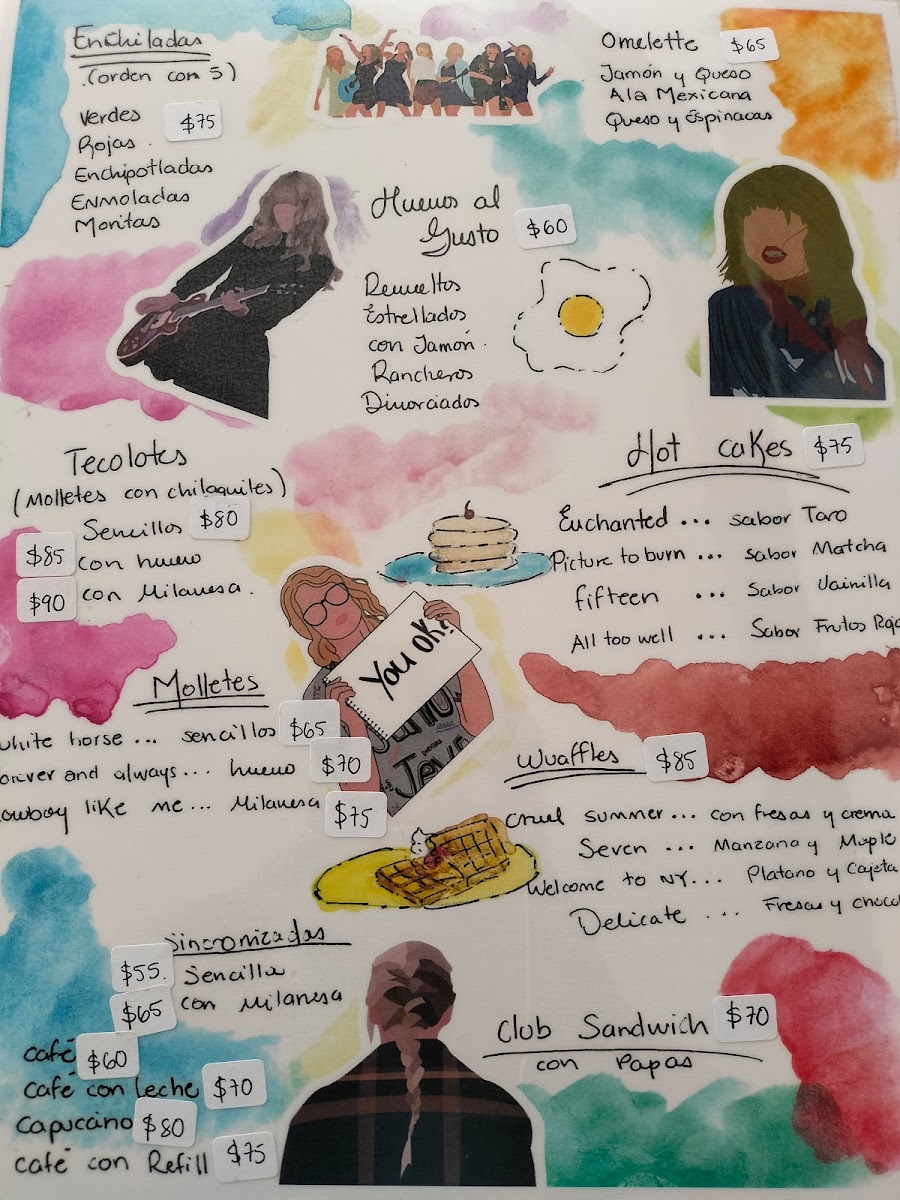 Enchiladas
(orden con 5)
Verdes $75
Rojas
Enchipotladas
Enmoladas
Moritas
Omelette $65
Jamón y Queso
A la Mexicana
Queso y Espinacas
Huevos al
Gusto $60
Revueltos
Estrellados
con Jamón
Rancheros
Divorciados
Tecolotes
(Molletes con chilaquiles)
Sencillos $80
$85 con huevo
$90 con Milanesa.
Hot cakes $75
Enchanted ... sabor Taro
Picture to burn ... sabor Matcha
fifteen ... Sabor Vainilla
All too well ... Sabor Frutos Rojo
You ok?
Molletes
white horse ... sencillos $65
orever and always... huevo $70
owboy like me... Milanesa $75
Wuaffles $85
cruel summer ... con fresas y crema
Seven ... Manzana y Maple
Welcome to NY... Platano y Cajeta
Delicate ... Fresas y chocol
Sincronizadas
$55. Sencilla
$65 con Milanesa
café $60
café con leche $70
capuccino $80
café con Refill $75
Club Sandwich $70
con Papas